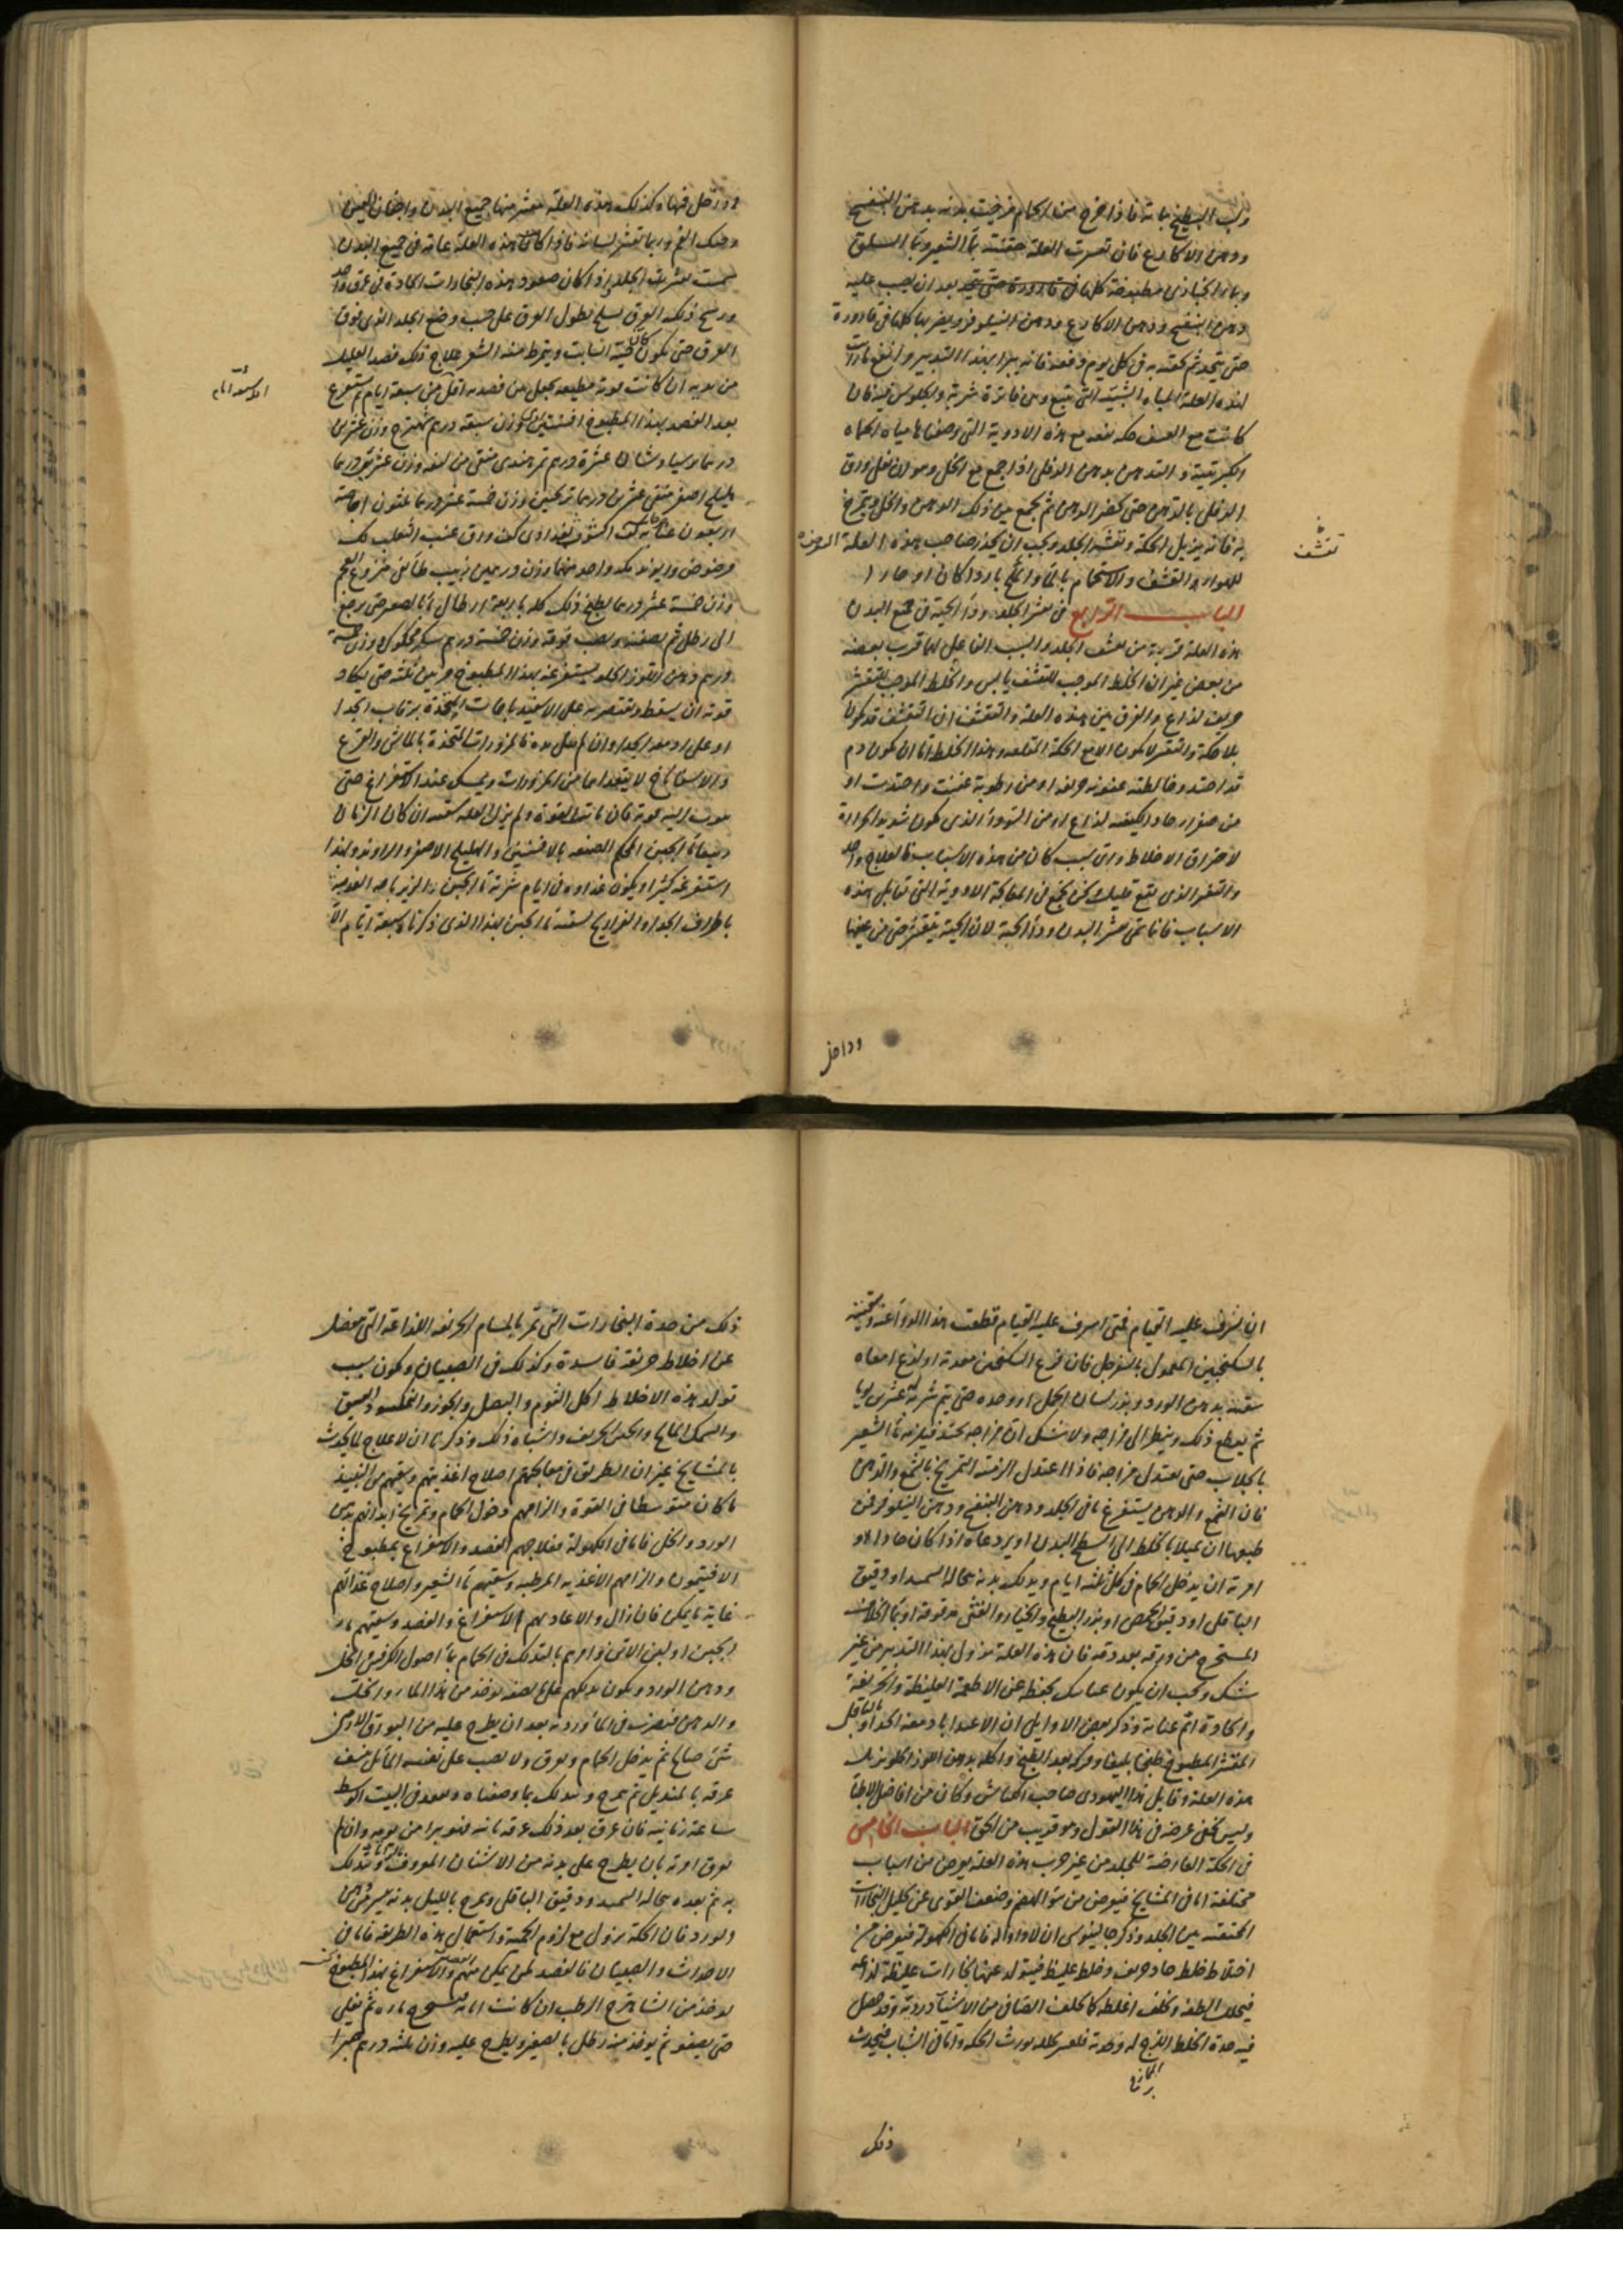 ولب البطيخ بماته فاذا خرج من الحمام مرخت بدنه بدهن البنفسج
ودهن الاكارع فان تعسرت العلة حقنته بماء الشعير وبماء السلق
وماء الخبازى مطبوخة كلها فى قارورة حتى يتحد بعد ان يصب عليه
دهن البنفسج ودهن الاكارع ودهن النيلوفر ويضربها كلها فى قارورة
حتى يتحد ثم تحقنه به فى كل يوم دفعة فانه يبرا بهذا التدبير وانفع ما رايت
لهذه العلة المياه الشبية التى تنبع ومن فاترة شربه والجلوس فيه فان
كانت مع القشف حكه نفعه مع هذه الادوية التى وصفناها مياه الحماه
الكبريتية والتدهن بدهن الدفلى اذا جمع مع الخل وهو ان تغلى ورق
الدفلى بالدهن حتى يخضر الدهن ثم يجمع بين ذلك الدهن والخل ويتمرخ
به فانه يزيل الحكة وتقشف الجلد ويجب ان يحذر صاحب هذه العلة التعرض
للهواء والتقشف والاستحمام بالماء المالح باردا كان او حارا
الباب الرابع فى تقشر الجلد وداء الحية فى جميع البدن
هذه العلة قريبة من تقشف الجلد والسبب الفاعل لهما قريب بعضه
من بعض غير ان الخلط الموجب للتقشف يابس والخلط الموجب للتقشر
حريف لذاع والفرق بين هذه العلة والتقشف ان التقشف قد يكون
بلا حكة والتقشر لا يكون الا مع الحكة المقلقه وهذا الخلط اما ان يكون دم
قد احتد وخالطته عفونه حريفه او من رطوبة عفنت واحتدت او
من صفراء حاد الكيفيه لذاع او من السوداء الذى يكون شديد الحرارة
لاحتراق الاخلاط واى سبب كان من هذه الاسباب فالعلاج واحد
والتقشر الذى يتبع قليلك نحن نجمع فى المعالجة الادوية التى تقابل هذه
الاسباب فانا نسمى تقشر البدن وداء الحية لان الحية يتقشر حتى من عينها
تقشف
وداخل
وداخل فمها وكذلك هذه العلة يتقشر منها جميع البدن واجفان العينين
وحنك الفم وربما تقشر لسانه فاذا كانت هذه العلة عامة فى جميع البدن
سميت تقشر الجلد واذا كان صعود هذه البخارات الحادة فى عرق واحد
ورسخ ذلك العرق يسلخ بطول العرق على حسب وضع الجلد الذى فوق
العرق حتى يكون كانه الحية انسابت ويتمرط منه الشعر علاج ذلك فصد العليل
من يديه ان كانت قوته مطيعه يجعل بين فصديه اقل من سبعة ايام ثم يستفرغ
بعد الفصد بهذا المطبوخ افسنتين رومى وزن سبعة دراهم شاهترج وزن عشرين
او تسعة ايام
درهما وسناء عشرة دراهم تمر هندى منقى من ليفه وزن عشرين درهما
هليلج اصفر منقى عشرين درهما ترنجبين وزن خمسة عشر درهما عشرون اجاصة
اربعون عنابه كشوث بغدادى كف ورق عنب الثعلب كف
مرضوض وريوند ولك واحد منهما وزن درهمين زبيب طائفى منزوع العجم
وزن خمسة عشر درهما يطبخ ذلك كله باربعة ارطال ماء بالصغير حتى يرجع
الى رطل ثم يصفيه ويصب فوقه وزن خمسة دراهم سكر محكوك ووزن خمسة
دراهم دهن اللوز الحلو يستفرغه بهذا المطبوخ مرتين ثلثة حتى يكاد
قوته ان يسقط وتقتصر به على الاسفيدباجات المتخذة برقاب الجدا
والاسفاناخ لا يتعداها من المزورات ويمسك عند الاستفراغ حتى
استفرغه كثيرا ويكون غذاؤه فى ايام شربة ماء الجبن الزيرباجه العدسية
باطراف الجدا والفراريج تسقيه ماء الجبن بهذا الذى ذكرناه سبعة ايام الا
ان تسرف عليه القيام فمتى اسرف عليه القيام قطعت هذا الدواء عنه وسقيته
بالسكنجبين المعمول بالسفرجل فان قرع السكنجبين معدته او لذع امعاه
سقيته بدهن الورد وبزر لسان الحمل او وحده حتى يتم شربة عشرين يوما
ثم يقطع ذلك وينظر الى مزاجه ولا نشك ان مزاجه يحتد فيلزمه ماء الشعير
بالجلاب حتى يعتدل مزاجه فاذا اعتدل الزمته التمريخ بالشمع والدهن
فان الشمع والدهن يستفرغ ما فى الجلد ودهن البنفسج ودهن النيلوفر فى
طبعهما ان تميلا بالخلط الى سطح البدن او يردعاه اذا كان حادا او
امرته ان يدخل الحمام فى كل ثلثة ايام ويدلك بدنه بنخالة السميد او دقيق
الباقلى او دقيق الحمص او بزر البطيخ والخيار والقثى مدقوقه او بماء الخلاف
المستخرج من ورقه بعد دقه فان هذه العلة تزول بهذا التدبير من غير
شك ويجب ان يكون عنايتك بحفظه عن الاطعمة الغليظة والحريفة
والحادة اتم عناية وذكر بعض الاوايل ان الاغتذا بادمغه الجدا وبالباقلى
المقشر المطبوخ طبخا بليغا ومركه بعد الطبخ واكله بدهن اللوز الحلو يزيل
هذه العلة وقايل هذا اليهودى صاحب الكناش وكان من افاضل الاطباء
وليس يخفى غرضه فى هذا القول وهو قريب من الحق الباب الخامس
فى الحكة العارضة للجلد من غير جرب هذه العلة يعرض من اسباب
مختلفة اما فى المشايخ فيعرض من سوء الهضم وضعف القوى عن تحليل البخارات
المحتقنه بين الجلد وذكر جالينوس ان لا دواء له فاما فى الكهولة فيعرض من
اختلاط خلط حاد حريف وخلط غليظ فيتولد عنهما بخارات غليظة لذاعه
فيتحلل الطفه ويخلف اغلظه كما يخلف الصافى من الاشياء درديه وقد حصل
فيه حدة الخلط اللزج له وحدته فلعسر تحلله يورث الحكة واما فى الشباب فيحدث
ذلك
ذلك من حدة البخارات التى تمر بالمسام الحريفه اللذاعة التى تفضل
عن اخلاط حريفة فاسدة وكذلك فى الصبيان ويكون سبب
تولد هذه الاخلاط اكل الثوم والبصل والجوز والنمكسود العتيق
والسمك المالح والجبن الحريف واشباه ذلك وذكرنا ان لا علاج لما يحدث
بالمشايخ غير ان الطريق فى معالجتهم اصلاح اغذيتهم وسقيهم من النبيذ
ما كان متوسطا فى القوة والزامهم دخول الحمام وتمريخ ابدانهم بدهن
الورد والخل فاما فى الكهولة فعلاجهم الفصد والاستفراغ بمطبوخ
الافتيمون والزامهم الاغذيه المرطبه وسقيهم ماء الشعير واصلاح غذائهم
غاية ما يمكن فان زال والا عاد بهم الاستفراغ والفصد وسقيتهم ماء
الجبن او لبن الاتن وامرهم بالتدلك فى الحمام بماء اصول الكرفس والخل
ودهن الورد ويكون تدلكهم على ما نصفه يوخذ من هذا الماء والخل
والدهن فيضرب فى الماوردية بعد ان يطرح عليه من البورق الارمنى
شى صالح ثم يدخل الحمام ويعرق ولا يصب على نفسه الماء بل ينشف
عرقه بالمنديل ثم يتمرخ ويتدلك بما وصفناه ويقعد فى البيت الاوسط
ساعة زمانية فان عرق بعد ذلك عرقه فانه يبرا من يومه وان لم
يعرق امرته بان يطرح على بدنه من الاشنان المعروف ويتدلك
به ثم بعده بنخالة السميد ودقيق الباقلى ويمرخ بالليل بدنه بيسير من دهن
الورد فان الحكة تزول مع لزوم الحمية واستعمال هذه الطريقة فاما فى
الاحداث والصبيان فالفصد لمن يمكن منهم والاستفراغ بهذا المطبوخ
يوخذ من الشاهترج الرطب ان كانت
حتى يصفو ثم يوخذ منه رطل بالصغير ويطرح عليه وزن ثلثة دراهم صبرا